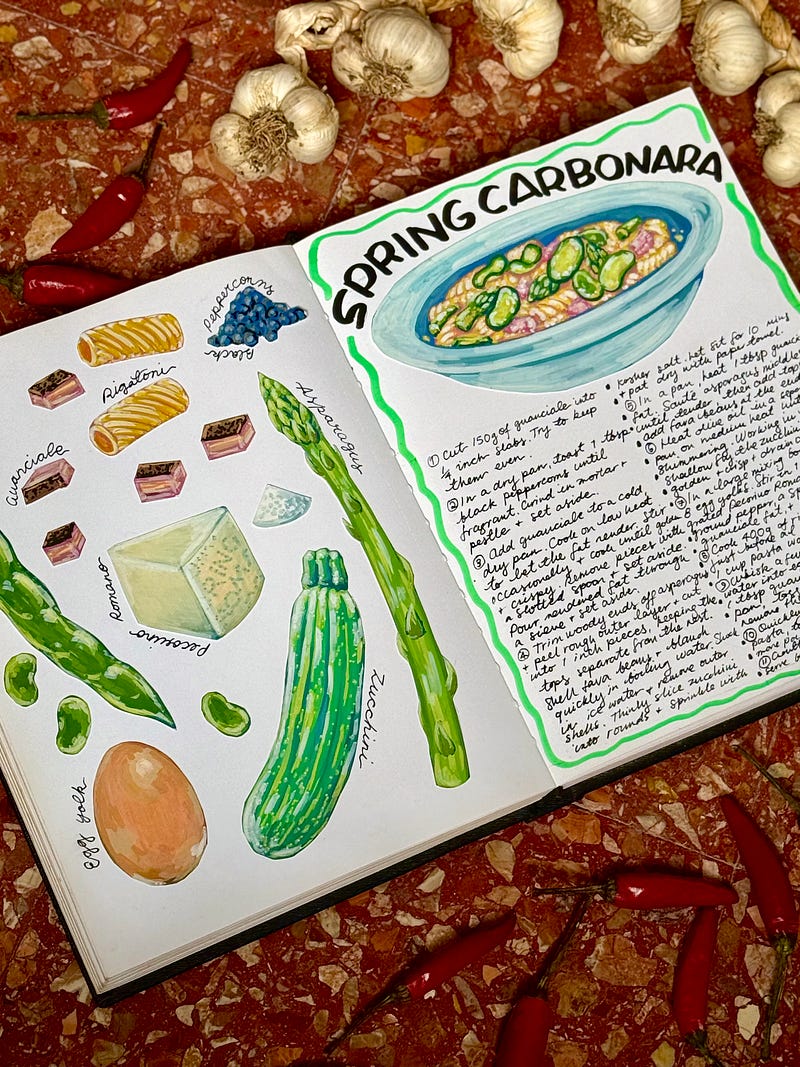 Black
Peppercorns
Rigatoni
Asparagus
Guanciale
Pecorino
Romano
Zucchini
egg yolk
SPRING CARBONARA
① Cut 150g of guanciale into
¼ inch slabs. Try to keep
them even.
② In a dry pan, toast 1 tbsp
black peppercorns until
fragrant. Grind in mortar +
pestle + set aside.
③ Add guanciale to a cold,
dry pan. Cook on low heat
to let the fat render. Stir
occasionally + cook until golden
+ crispy. Remove pieces with
a slotted spoon + set aside.
Pour rendered fat through
a sieve + set aside.
④ Trim woody ends off asparagus,
+ peel rough outer layer + cut
into 1 inch pieces, keeping the
tops separate from the rest.
Shell fava beans + blanch
quickly in boiling water. Shock
in ice water + remove outer
shells. Thinly slice zucchini
into rounds + sprinkle with
kosher salt. Let sit for 10 mins
+ pat dry with paper towel.
⑤ In a pan, heat 1 tbsp guanciale
fat. Sauté asparagus
until tender then add tops
add fava beans at the end
⑥ Heat olive oil in a
pan on medium heat until
shimmering. Working in
shallow fry the zucchini
golden + crisp + drain
⑦ In a large mixing
6 egg yolks,
grated Pecorino Romano
ground pepper
guanciale fat.
⑧ Cook 400g of
just before
1 cup pasta
⑨ Whisk
water into
1 tbsp
pan,
remaining
⑩ Quickly
pasta
more
⑪
serve